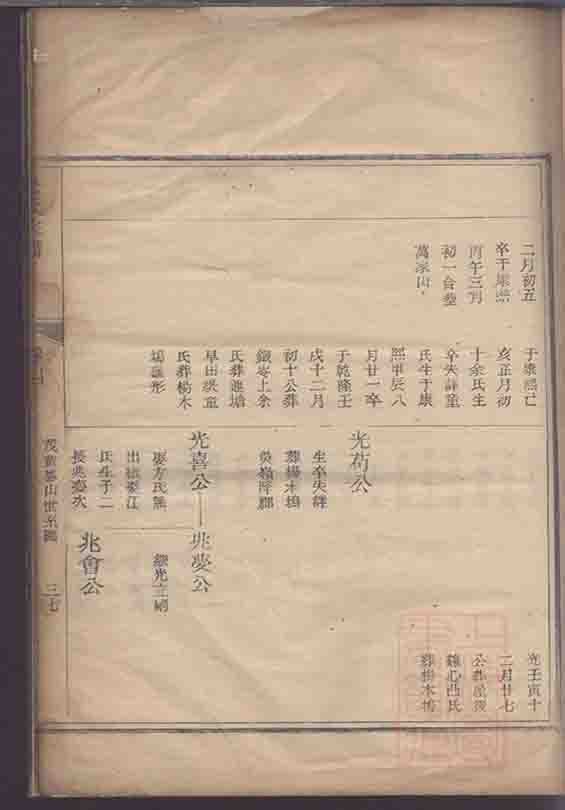 二月初五
卒于康熙
丙午三月
初一合葬
萬家山
于康熙己
亥正月初
十余氏生
卒失詳葬
氏生于康
熙甲辰八
月廿一卒
于乾隆壬
戌十二月
初十公葬
上余
氏葬進塘
早田
氏葬楊木
塢 形
光苟公
生卒失詳
葬楊木塢
吳嶺
光喜公
兆慶公
娶方氏無
出 娶江
氏生子二
長兆慶次
繼光立嗣
兆會公
光壬寅十
二月廿七
公葬屋後
心凸氏
葬楊木塢
山世系圖
三七